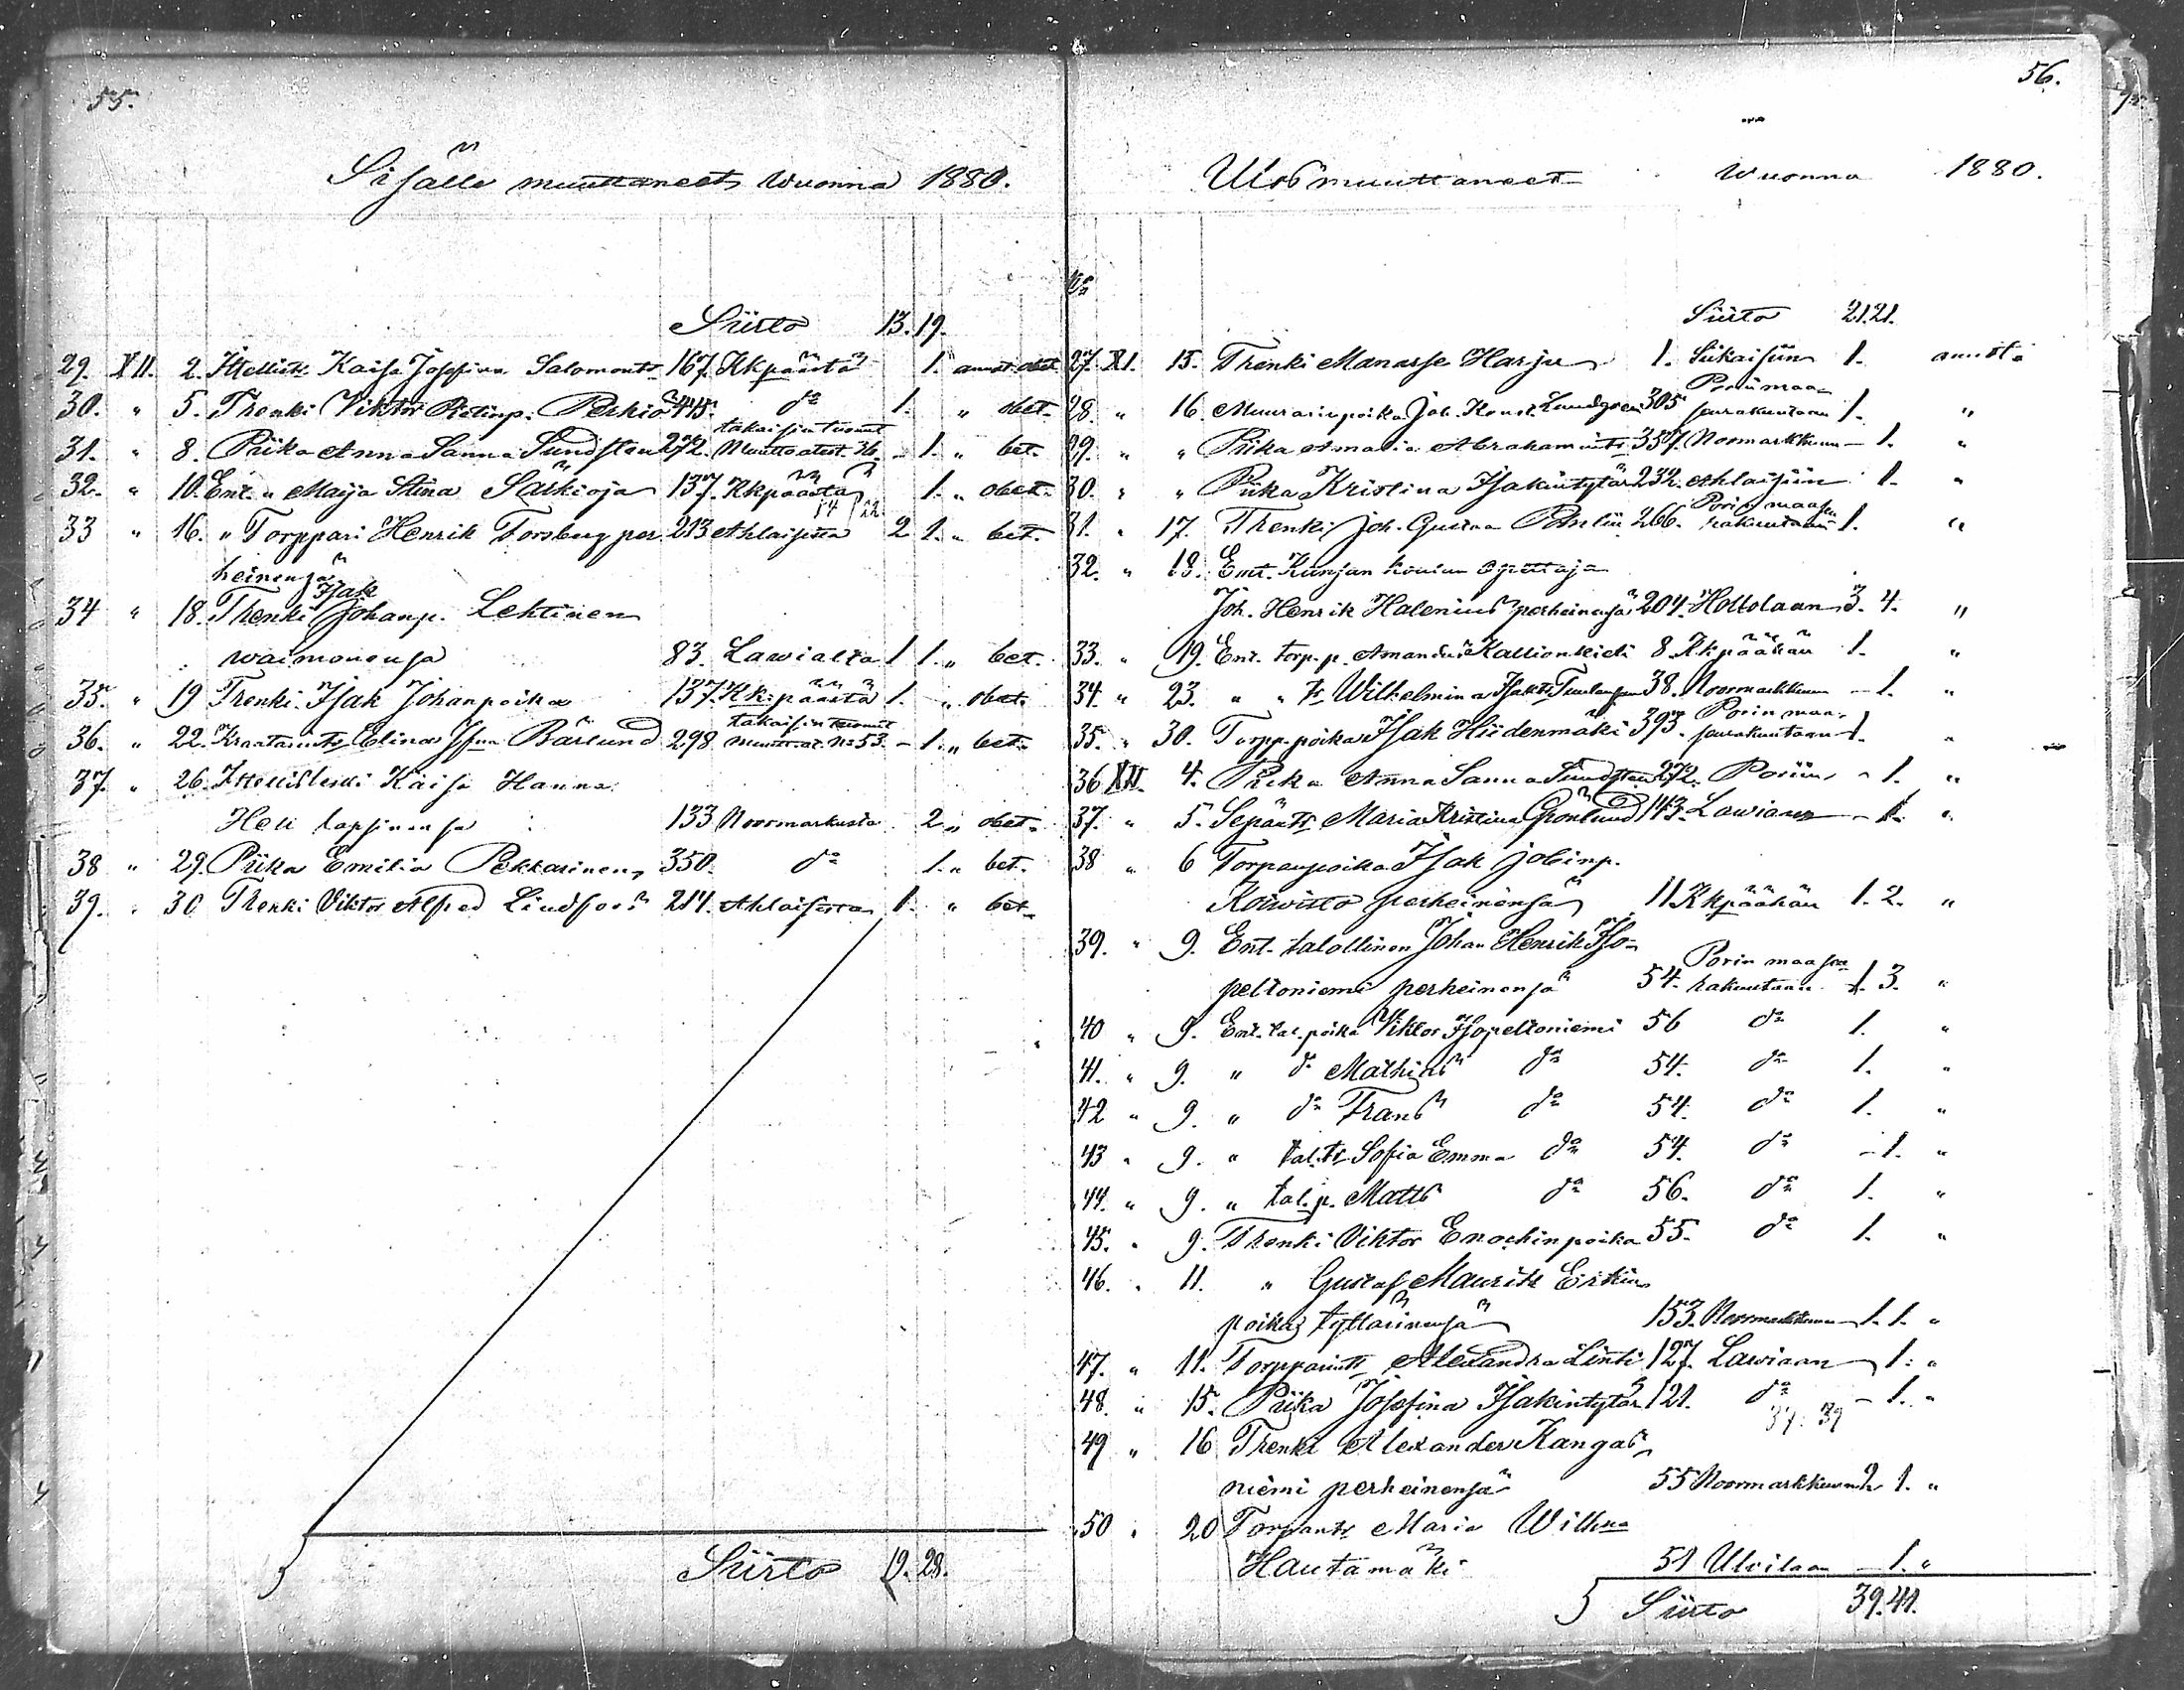 55.
Sisälle muuttaneet wuonna 1880.
Siirto 13. 19.
29. XII. 2. Kaisa Josefina Salomonts 167. Kkpäästä 1.
30. " 5. Trenki Viktor Perkiö 445. do 1. " obet.
takaisin tuonut
31. " 8. Piika Anna Sanna Sundsten 272. Muuttoatest. 36. - 1. " bet.
32. " 10. Ent. " Maija Stina Särkioja 137. Kkpäästä 1. " obet.
33 " 16. " Torppari Henrik Forsberg per 213 Ahlaisista 2 1. " bet.
heinensä
Isak
34 " 18. Trenki Johanp. Lehtinen
waimonensa 83. Lawialta 1 1. " bet.
35. " 19 Trenki Isak Johanpoika 137. Kk:päästä 1. " obet.
takaisin tuonut
36. " 22. Elina Barlund 298. No 53. - 1. " bet.
37. " 26. Ittellisleski Kaisa Hanna
Heli lapsinensa 133 Noormarkusta 2 " obet.
38 " 29. Piika Emilia Pekkarinen 350. do 1. " bet.
39. " 30 Trenki Viktor Alfred Lindfors 214. Ahlaisista 1. " bet.
Siirto 19. 28.
56.
Ulosmuuttaneet wuonna 1880.
Siirto 21. 21.
27. XI. 15. Trenki Manasse Harju 1. Siikaisiin 1.
Porin maa-
28 " 16. Muurarinpoika Joh. Konst. Lundgren 305 seurakuntaan 1. "
29. " " Piika Amalia Abrahamints 357. Noormarkkuun - 1. "
30. " " Piika Kristina Isakintytär 232. Ahlaisiin 1. "
Porin maaseu
31. " 17. Trenki Joh. Gustaa 266. rakuntaan 1. "
32. " 18. Ent. Kunjan koulun opettaja
Joh. Henrik Halenius perheinensä 204. Hollolaan 3. 4. "
33. " 19. Ent. torp. p. Amandus Kallionkieli 8. Kkpäähän 1. "
34. " 23. " " ts Wilhelmina 38. Noormarkkuun - 1. "
Porin maa-
35. " 30. Torpp. poika Isak Hiidenmäki 393. seurakuntaan 1. "
36 XII. 4. Piika Anna Sanna Sundsten 272. Poriin - 1. "
37. " 5. Sepänts Maria Kristina Grönlund 143. Lawiaan - 1. "
38 " 6 Torpanpoika Isak Jobinp.
Koiwisto perheinensä 11 Kkpäähän 1. 2. "
39. " 9. Ent. talollinen Johan Henrik Iso-
Porin maaseu
peltoniemi perheinensä 54. rakuntaan 1. 3. "
40 " 9. Ent. tal. poika Viktor Isopeltoniemi 56 do 1. "
41. " 9. " do Mathias do 54. do 1. "
42 " 9. " do Frans do 54. do 1. "
43 " 9. " tal. ts Sofia Emma do 54. do - 1. "
44. " 9. " tal. p. Matts do 56. do 1. "
45. " 9. Trenki Viktor Enochinpoika 55. do 1. "
46. " 11. " Gustaf Maurits Erkin
poika tyttärinensä 153. Noormarkkuun 1. 1. "
47. " 11. Torpparints Alexandra Linti 127. Lawiaan 1. "
48. " 15. Piika Josefina Isakintytär 121. do - 1. "
37. 39
49 " 16 Trenki Alexander Kangas
niemi perheinensä 55 Noormarkkuun 2 1. "
50 " 20 Torpants Maria Wilhna
Hautamäki 51 Ulvilaan - 1. "
Siirto 39. 41.